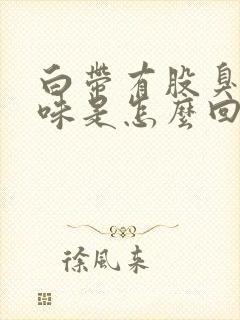 白带有股臭
味是怎麼回
徐風来